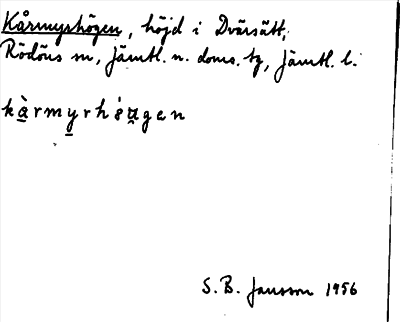 Kårmyrhögen, höjd i Dvärsätt,
Rödöns sn, Jämtl. n. doms. tg, Jämtl. l.
kàrmyrhö́gen
S. B. Jansson 1956